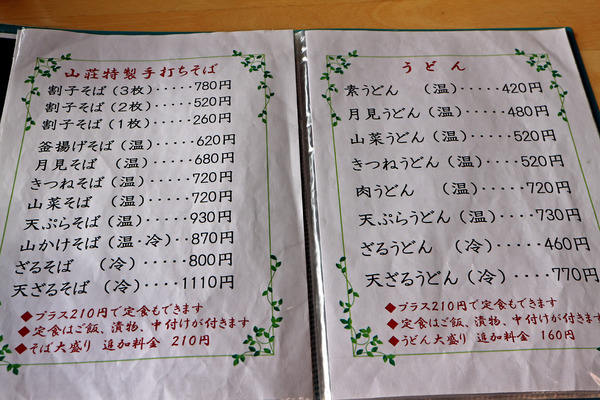 山荘特製手打ちそば
割子そば（3枚）‥‥‥780円
割子そば（2枚）‥‥‥520円
割子そば（1枚）‥‥‥260円
釜揚げそば（温）‥‥‥620円
月見そば　（温）‥‥‥680円
きつねそば（温）‥‥‥720円
山菜そば　（温）‥‥‥720円
天ぷらそば（温）‥‥‥930円
山かけそば（温・冷）‥870円
ざるそば　（冷）‥‥‥800円
天ざるそば（冷）‥‥1110円
◆プラス210円で定食もできます
◆定食はご飯、漬物、中付けが付きます
◆そば大盛り　追加料金　210円
うどん
素うどん　（温）‥‥‥420円
月見うどん（温）‥‥‥480円
山菜うどん（温）‥‥‥520円
きつねうどん（温）‥‥520円
肉うどん　（温）‥‥‥720円
天ぷらうどん（温）‥‥730円
ざるうどん　（冷）‥‥460円
天ざるうどん（冷）‥‥770円
◆プラス210円で定食もできます
◆定食はご飯、漬物、中付けが付きます
◆うどん大盛り　追加料金　160円